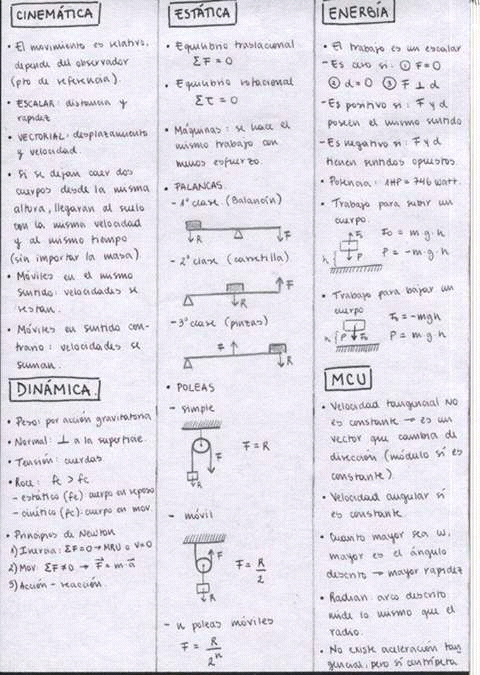 CINEMÁTICA
• El movimiento es relativo,
depende del observador
(pto de referencia).
• ESCALAR: distancia y
rapidez
• VECTORIAL: desplazamiento
y velocidad.
• Si se dejan caer dos
cuerpos desde la misma
altura, llegarán al suelo
con la misma velocidad
y al mismo tiempo
(sin importar la masa)
• Móviles en el mismo
sentido: velocidades se
restan.
• Móviles en sentido con-
trario: velocidades se
suman.
DINÁMICA.
• Peso: por acción gravitatoria
• Normal: ⊥ a la superficie.
• Tensión: cuerdas.
• Roce: fe > fc
- estático (fe): cuerpo en reposo
- cinético (fc): cuerpo en mov.
• Principios de Newton
1) Inercia: ΣF=0 → MRU o V=0
2) Mov: ΣF≠0 → F⃗ = m·a⃗
3) Acción - reacción.
ESTÁTICA
• Equilibrio traslacional
ΣF = 0
• Equilibrio rotacional
Στ = 0
• Máquinas: se hace el
mismo trabajo con
menos esfuerzo.
• PALANCAS.
- 1ª clase (Balancín)
R F
- 2ª clase (carretilla)
F
R
- 3ª clase (pinzas)
F
R
• POLEAS
- simple
F = R
F
R
- móvil
F
F = R/2
R
- n poleas móviles
F = R/2ⁿ
ENERGÍA
• El trabajo es un escalar
- Es cero si: ① F=0
② d=0 ③ F ⊥ d
- Es positivo si: F y d
poseen el mismo sentido
- Es negativo si: F y d
tienen sentidos opuestos.
• Potencia: 1HP = 746 watt.
• Trabajo para subir un
cuerpo.
F₀ F₀ = m·g·h
h P P = -m·g·h
• Trabajo para bajar un
cuerpo
F₀ = -mgh
h P F₀ P = m·g·h
MCU
• Velocidad tangencial NO
es constante → es un
vector que cambia de
dirección (módulo sí es
constante).
• Velocidad angular sí
es constante.
• Cuanto mayor sea w,
mayor es el ángulo
descrito → mayor rapidez
• Radian: arco descrito
mide lo mismo que el
radio.
• No existe aceleración tan
gencial, pero sí centrípeta